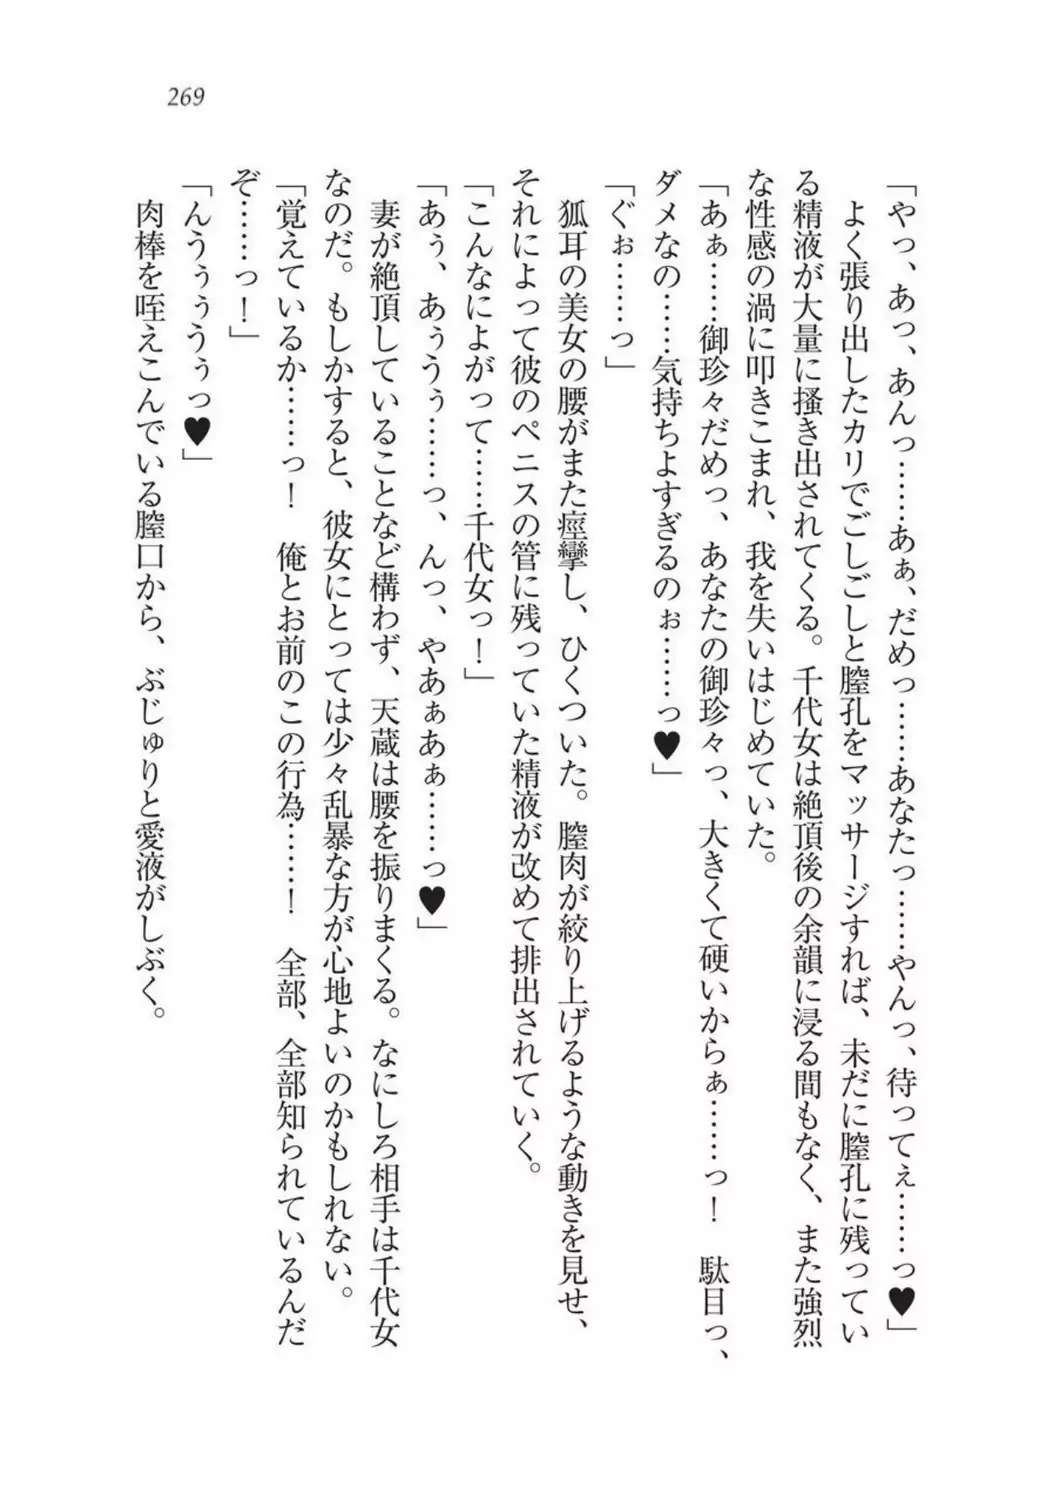 269
「やっ、あっ、あんっ……あぁ、だめっ……あなたっ……やんっ、待ってぇ……っ♥」
よく張り出したカリでごしごしと膣孔をマッサージすれば、未だに膣孔に残ってい
る精液が大量に掻き出されてくる。千代女は絶頂後の余韻に浸る間もなく、また強烈
な性感の渦に叩きこまれ、我を失いはじめていた。
「あぁ……御珍々だめっ、あなたの御珍々っ、大きくて硬いからぁ……っ！　駄目っ、
ダメなの……気持ちよすぎるのぉ……っ♥」
「ぐぉ……っ」
狐耳の美女の腰がまた痙攣し、ひくついた。膣肉が絞り上げるような動きを見せ、
それによって彼のペニスの管に残っていた精液が改めて排出されていく。
「こんなによがって……千代女っ！」
「あぅ、あぅうぅ……っ、んっ、やあぁあぁ……っ♥」
妻が絶頂していることなど構わず、天蔵は腰を振りまくる。なにしろ相手は千代女
なのだ。もしかすると、彼女にとっては少々乱暴な方が心地よいのかもしれない。
「覚えているか……っ！　俺とお前のこの行為……！　全部、全部知られているんだ
ぞ……っ！」
「んうぅぅうぅっ♥」
肉棒を咥えこんでいる膣口から、ぶじゅりと愛液がしぶく。